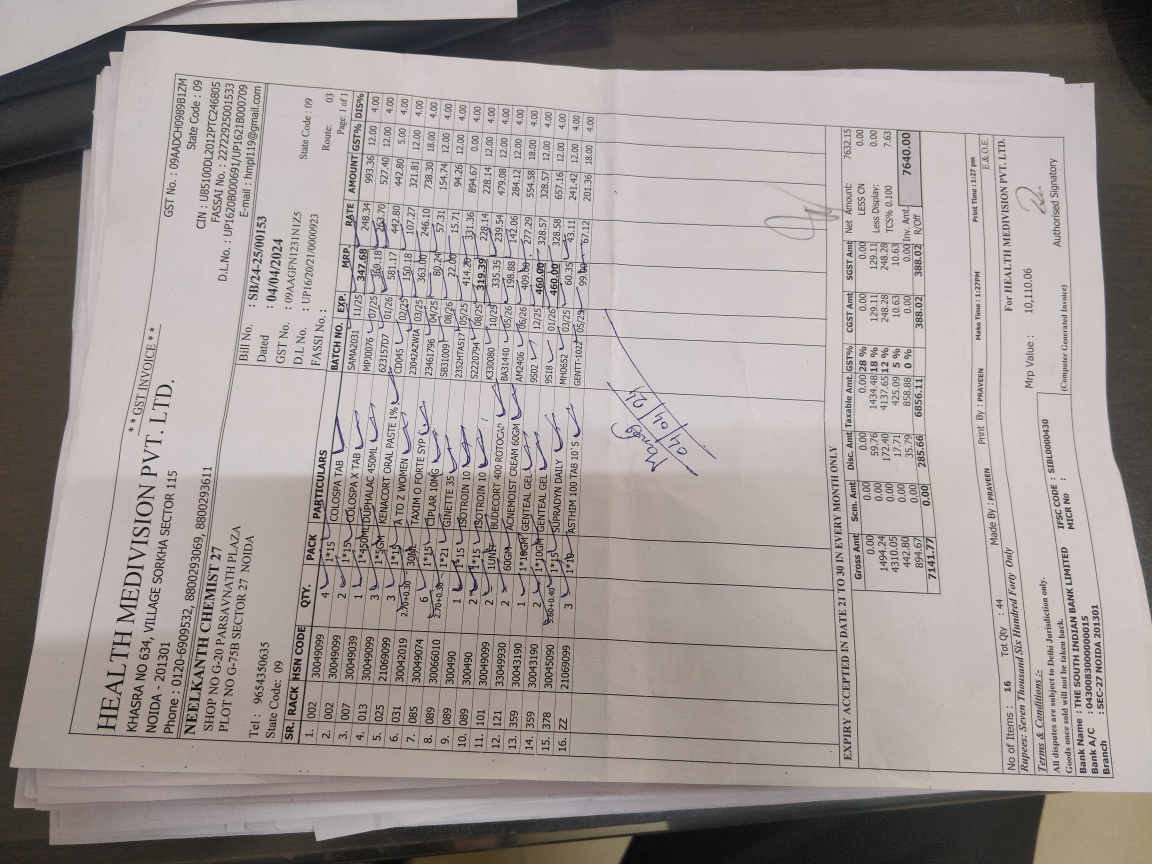 ** GST INVOICE **
HEALTH MEDIVISION PVT. LTD.
KHASRA NO 634, VILLAGE SORKHA SECTOR 115
NOIDA - 201301
Phone : 0120-6909532, 8800293069, 8800293611
GST No. : 09AADCH0989B1ZM
State Code : 09
CIN : U85100DL2012PTC246805
FASSAI No : 22722925001533
D.L.No. : UP1620B000691/UP1621B000709
E-mail : hmpl119@gmail.com
NEELKANTH CHEMIST*27
SHOP NO G-20 PARSAVNATH PLAZA
PLOT NO G-75B SECTOR 27 NOIDA
Tel : 9654350635
State Code: 09
Bill No. : SB/24-25/00153
Dated : 04/04/2024
GST No. : 09AAGFN1231N1Z5 State Code : 09
D.L No. : UP16/20/21/0000923
FASSI No. : Route: 03
Page: 1 of 1
SR. RACK HSN CODE QTY. PACK PARTICULARS BATCH NO. EXP. MRP. RATE AMOUNT GST% DIS%
1. 002 30049099 4 1*15 COLOSPA TAB SAMA2031 11/25 347.68 248.34 993.36 12.00 4.00
2. 002 30049099 2 1*15 COLOSPA X TAB MP00076 07/25 369.18 263.70 527.40 12.00 4.00
3. 007 30049039 1 1*450ML DUPHALAC 450ML 623157D7 01/26 581.17 442.80 442.80 5.00 4.00
4. 013 30049099 3 1*5GM KENACORT ORAL PASTE 1% CD045 02/25 150.18 107.27 321.81 12.00 4.00
5. 025 21069099 3 1*15 A TO Z WOMEN 23042AZWIA 03/25 363.00 246.10 738.30 18.00 4.00
6. 031 30042019 2.70+0.30 30ML TAXIM O FORTE SYP 23461796 04/25 80.24 57.31 154.74 12.00 4.00
7. 085 30049074 6 1*15 CIPLAR 10MG SB31009 08/26 22.00 15.71 94.26 12.00 4.00
8. 089 30066010 2.70+0.30 1*21 GINETTE 35 2352HTA517 05/25 414.20 331.36 894.67 0.00 4.00
9. 089 300490 1 1*15 ISOTROIN 10 S2220794 08/25 319.39 228.14 228.14 12.00 4.00
10. 089 300490 2 1*15 ISOTROIN 10 K330080 10/25 335.35 239.54 479.08 12.00 4.00
11. 101 30049099 2 1UNIT BUDECORT 400 ROTOCAP BA31440 05/26 198.88 142.06 284.12 12.00 4.00
12. 121 33049930 2 60GM ACNEMOIST CREAM 60GM AM2406 06/26 409.00 277.29 554.58 18.00 4.00
13. 359 30043190 1 1*10GM GENTEAL GEL 9502 12/25 460.00 328.57 328.57 12.00 4.00
14. 359 30043190 2 1*10GM GENTEAL GEL 9518 01/26 460.00 328.58 657.16 12.00 4.00
15. 378 30045090 5.60+0.40 1*15 SUPRADYN DAILY MH0652 03/25 60.35 43.11 241.42 12.00 4.00
16. ZZ 21069099 3 1*10 ASTHIM 100 TAB 10`S GENTT-1022 05/25 99.00 67.12 201.36 18.00 4.00
04/04/24
EXPIRY ACCEPTED IN DATE 21 TO 30 IN EVERY MONTH ONLY
Gross Amt Scm. Amt Disc. Amt Taxable Amt. GST% CGST Amt SGST Amt Net Amount: 7632.15
0.00 0.00 0.00 0.00 28 % 0.00 0.00 LESS CN 0.00
1494.24 0.00 59.76 1434.48 18 % 129.11 129.11 Less Display: 0.00
4310.05 0.00 172.40 4137.65 12 % 248.28 248.28 TCS% 0.100 7.63
442.80 0.00 17.71 425.09 5 % 10.63 10.63
894.67 0.00 35.79 858.88 0 % 0.00 0.00 Inv. Amt. 7640.00
7141.77 0.00 285.66 6856.11 388.02 388.02 R/Off
Made By : PRAVEEN Print By : PRAVEEN Make Time : 1:27PM Print Time : 1:27 pm
No of Items : 16 Tot Qty : 44 Mrp Value : 10,110.06 E.& O.E
Rupees: Seven Thousand Six Hundred Forty Only
Terms & Conditions :-
All disputes are subject to Delhi Jurisdiction only.
Goods once sold will not be taken back.
Bank Name : THE SOUTH INDIAN BANK LIMITED IFSC CODE : SIBL0000430
Bank A/C : 0430083000000015 MICR No :
Branch : SEC-27 NOIDA 201301
(Computer Generated Invoice)
For HEALTH MEDIVISION PVT. LTD.
Authorised Signatory